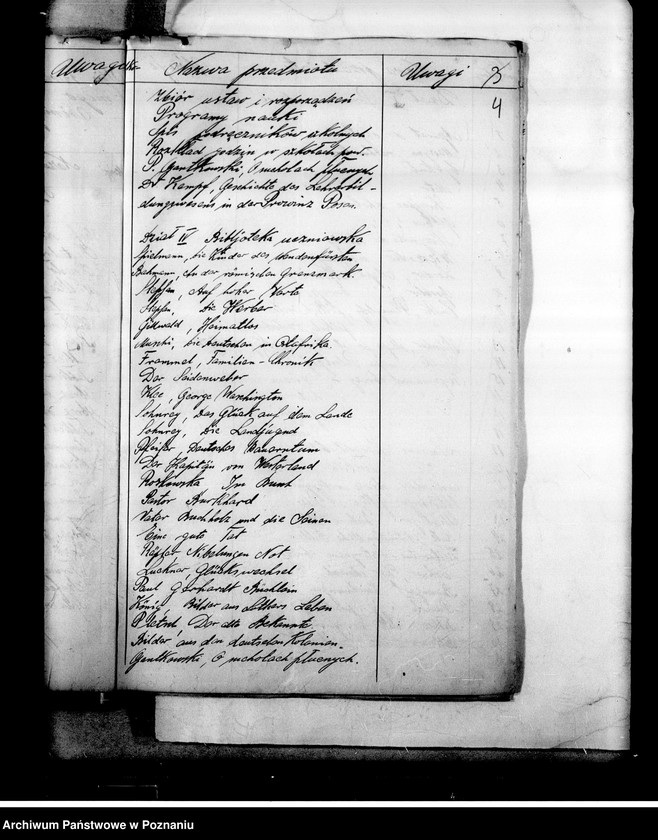 Uwagi
Nazwa przedmiotu
Uwagi
4
Zbiór ustaw i rozporządzeń
Programy nauki
Spis podręczników szkolnych
Rozkład godzin w szkołach pow.
P. Gantkowski, O suchotach płucnych
Dr Kempf, Geschichte des Lehrerbil-
dungswesens in der Prowinz Posen.
Dział IV Bibljoteka uczniowska
Spielmann, die Kinder des Wendenfürsten
Bahmann, An der römischen Grenzmark.
Steffen, Auf hoher Warte
Steffen, Die Werber
Heimatlos
die Deutschen in Ostafrika
Frommel, Familien-Chronik
Der Seidenweber
Klee, George Washington
Sohnrey, Das Glück auf dem Lande
Sohnrey, Die Landjugend
Pfeifer, Deutsches Bauerntum
Der Kapitän vom Westerland
Im Bunt
Pastor Burkhard
Vater Buchholz und die Seinen
Eine gute Tat
Nibelungen Not
Luckner Glückswechsel
Paul Gerhardt Büchlein
König, Bilder aus Luthers Leben
Der alte Bekannte
Bilder aus den deutschen Kolonien.
Gantkowski, O suchotach płucnych.
Archiwum Państwowe w Poznaniu